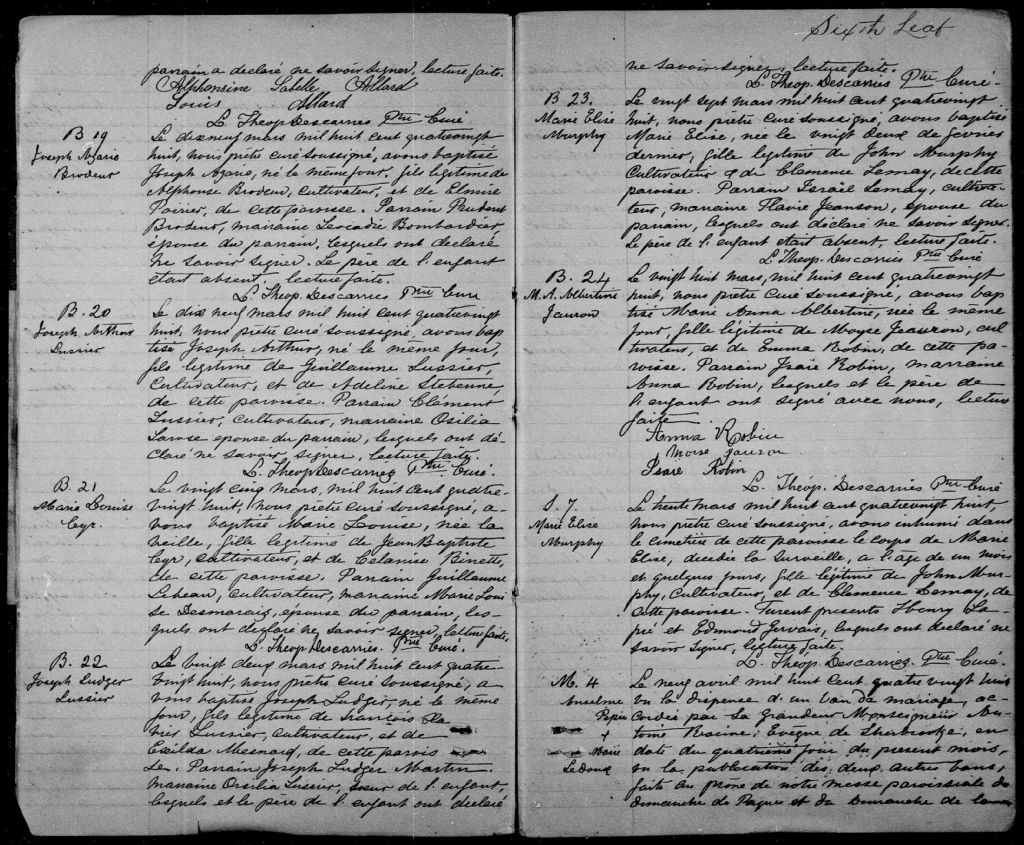 parrain a déclaré ne savoir signer, lecture faite.
Alphonsine Labelle Allard
Louis Allard
L. Theop. Descarries Ptre Curé
B 19
Joseph Azarie
Brodeur
Le dix neuf mars mil huit cent quatrevingt
huit, nous prêtre curé soussigné, avons baptisé
Joseph Azarie, né le même jour, fils legitime de
Alphonse Brodeur, cultivateur, et de Elmire
Poirier, de cette paroisse. Parrain Prudent
Brodeur, marraine Leocadie Bombardier,
épouse du parrain, lesquels ont déclaré
ne savoir signer. Le père de l'enfant
etait absent, lecture faite.
L. Theop. Descarries Ptre Curé
B. 20
Joseph Arthur
Lussier
Le dix neuf mars mil huit cent quatrevingt
huit, nous prêtre curé soussigné, avons bap
tisé Joseph Arthur, né le même jour,
fils legitime de Guillaume Lussier,
Cultivateur, et de Adeline Stebenne,
de cette paroisse. Parrain Clément
Lussier, cultivateur, marraine Osilia
Larose epouse du parrain, lesquels ont dé-
claré ne savoir signer, lecture faite.
L. Theop. Descarries Ptre Curé.
B. 21
Marie Louise
Cyr.
Le vingt cinq mars, mil huit cent quatre-
vingt huit, nous prêtre curé soussigné, a-
vons baptisé Marie Louise, née la
veille, fille legitime de Jean Baptiste
Cyr, cultivateur, et de Celanise Binette,
de cette paroisse. Parrain Guillaume
Lebeau, cultivateur, marraine Marie Loui
se Desmarais, épouse du parrain, les-
quels ont déclaré ne savoir signer, lecture faite.
L. Theop. Descarries. Ptre Curé.
B. 22
Joseph Ludger
Lussier
Le vingt deux mars mil huit cent quatre
vingt huit, nous prêtre curé soussigné, a
vons baptisé Joseph Ludger, né le même
jour, fils legitime de francois
Lussier, cultivateur, et de
Exilda Mesnard, de cette parois
se. Parrain Joseph Ludger Martin
maraine Orsilia Lussier, sœur de l'enfant,
lesquels et le père de l'enfant ont déclaré
Sixth Leaf
ne savoir signer, lecture faite.
L. Theop. Descarries Ptre Curé.
B 23.
Marie Elise
Murphy
Le vingt sept mars mil huit cent quatrevingt
huit, nous prêtre curé soussigné, avons baptisé
Marie Elise, née le vingt deux de fevrier
dernier, fille legitime de John Murphy
Cultivateur & de Clemence Lemay, de cette
paroisse. Parrain Israël Lemay, cultiva-
teur, marraine Flavie Jeanson, épouse du
parrain, lesquels ont déclaré ne savoir signer.
Le père de l'enfant etait absent, lecture faite.
L. Theop. Descarries Ptre Curé
B. 24
M. A. Albertine
Jauron
Le vingt huit mars, mil huit cent quatrevingt
huit, nous prêtre curé soussigné, avons bap
tisé Marie Anna Albertine, née le même
jour, fille légitime de Moyse Jeauron, cul
tivateur, et de Emma Robin, de cette pa-
roisse. Parrain Isaïe Robin, marraine
Anna Robin, lesquels et le père de
l'enfant ont signé avec nous, lecture
faite
Anna Robin
Moise Jauron
Isaie Robin
L. Theop. Descarries Ptre Curé
S. 7.
Marie Elise
Murphy
Le trente mars mil huit cent quatrevingt huit,
nous prêtre curé soussigné, avons inhumé dans
le cimetière de cette paroisse le corps de Marie
Elise, decedée la surveille, a l'age de un mois
et quelques jours, fille légitime de John Mur-
phy, Cultivateur, et de Clemence Lemay, de
cette paroisse. Furent presents Henry La-
pré et Edmond Gervais, lesquels ont déclaré ne
savoir signer, lecture faite.
L. Theop. Descarries Ptre Curé.
M. 4
Anselme
Pepin
+
Marie
Ledoux
Le neuf avril mil huit cent quatre vingt huit
vu la dispense d'un ban de mariage, ac-
cordée par Sa Grandeur Monseigneur An-
toine Racine, Evêque de Sherbrooke, en
date du quatrième jour du present mois,
vu la publication des deux autres bans,
faite au prône de notre messe paroissiale du
dimanche de Paques et du dimanche de